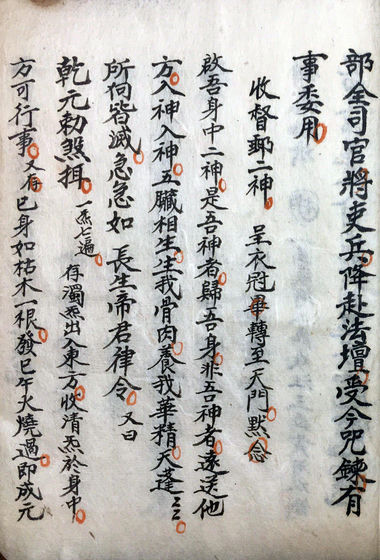 部全司官將吏兵降赴法壇受今呪鍊有
事委用
收督郵二神 呈衣冠畢轉至天門默念
啟吾身中二神是吾神者歸吾身非吾神者遂送他
方入神入神五臟相生生我骨肉養我華精天蓬ミミ
所伺皆滅急急如 長生帝君律令 又曰
乾元勅煞揖 一炁七遍 存濁炁出入東方收清炁於身中
方可行事又存巳身如枯木一根發巳午火燒過即成元